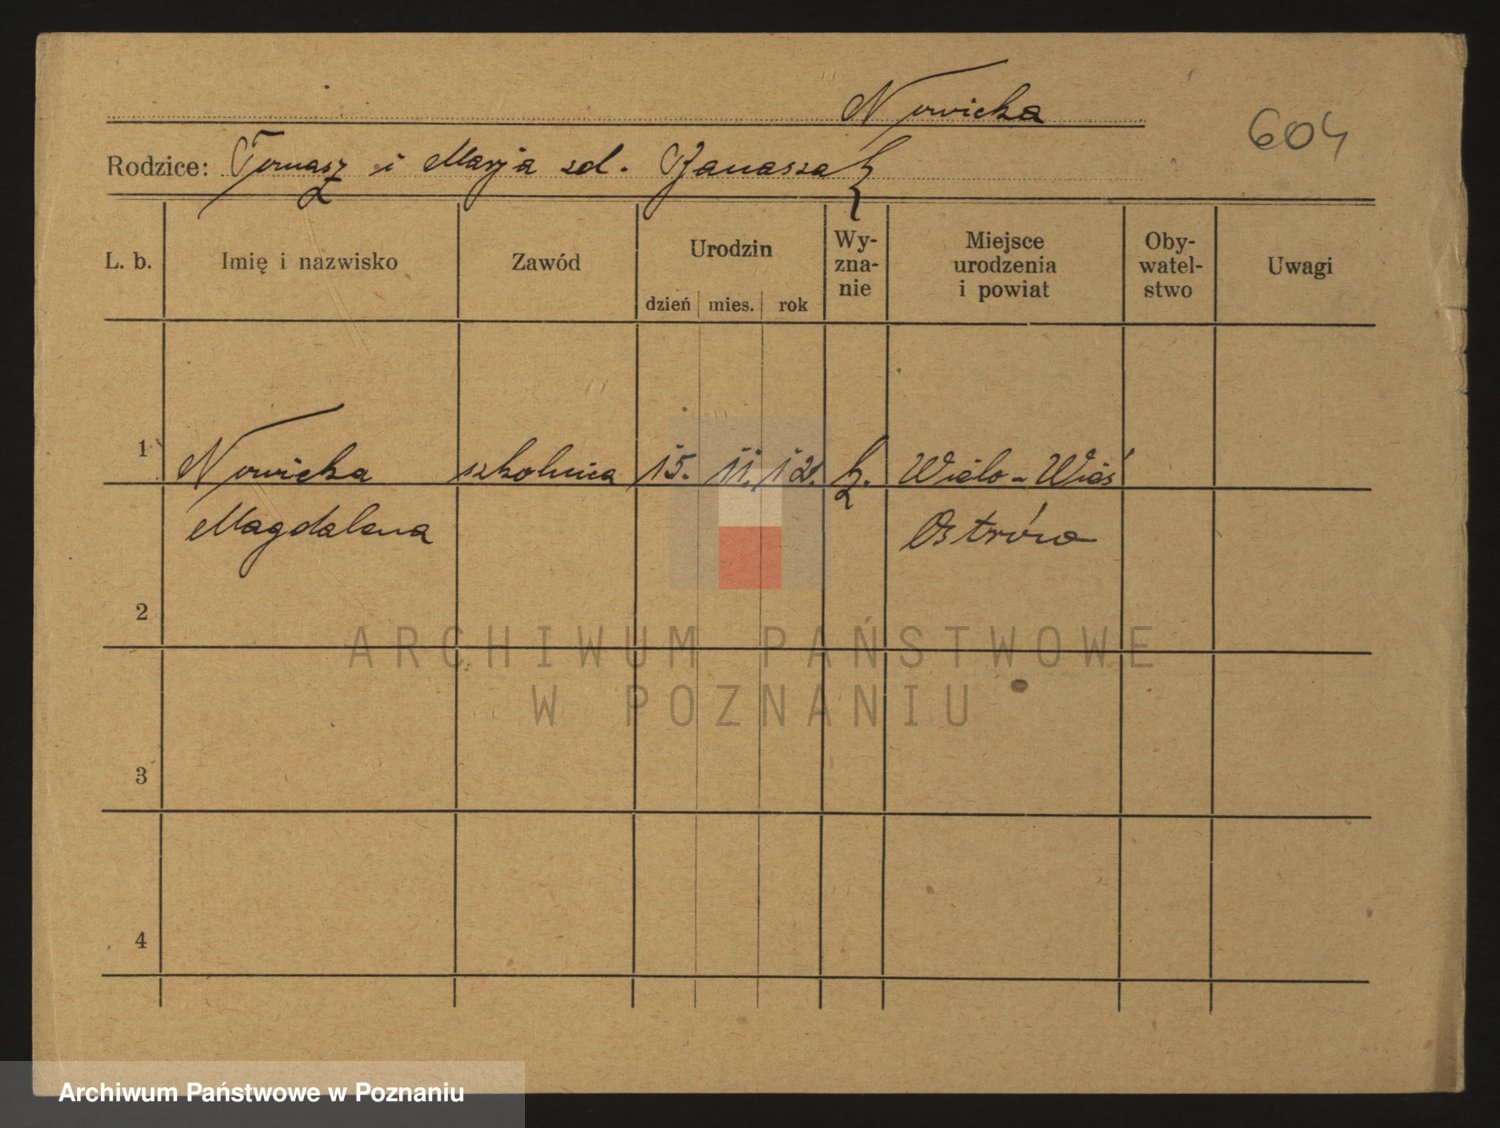 Nowicka
604
Rodzice: Tomasz i Marja zd. Banaszak
L. b. Imię i nazwisko Zawód Urodzin dzień mies. rok Wy-zna-nie Miejsce urodzenia i powiat Oby-watel-stwo Uwagi
1 Nowicka szkolnica 15. 11. 12. k. Wielo-Wieś
Magdalena Ostrów
2
3
4
ARCHIWUM PAŃSTWOWE
W POZNANIU
Archiwum Państwowe w Poznaniu